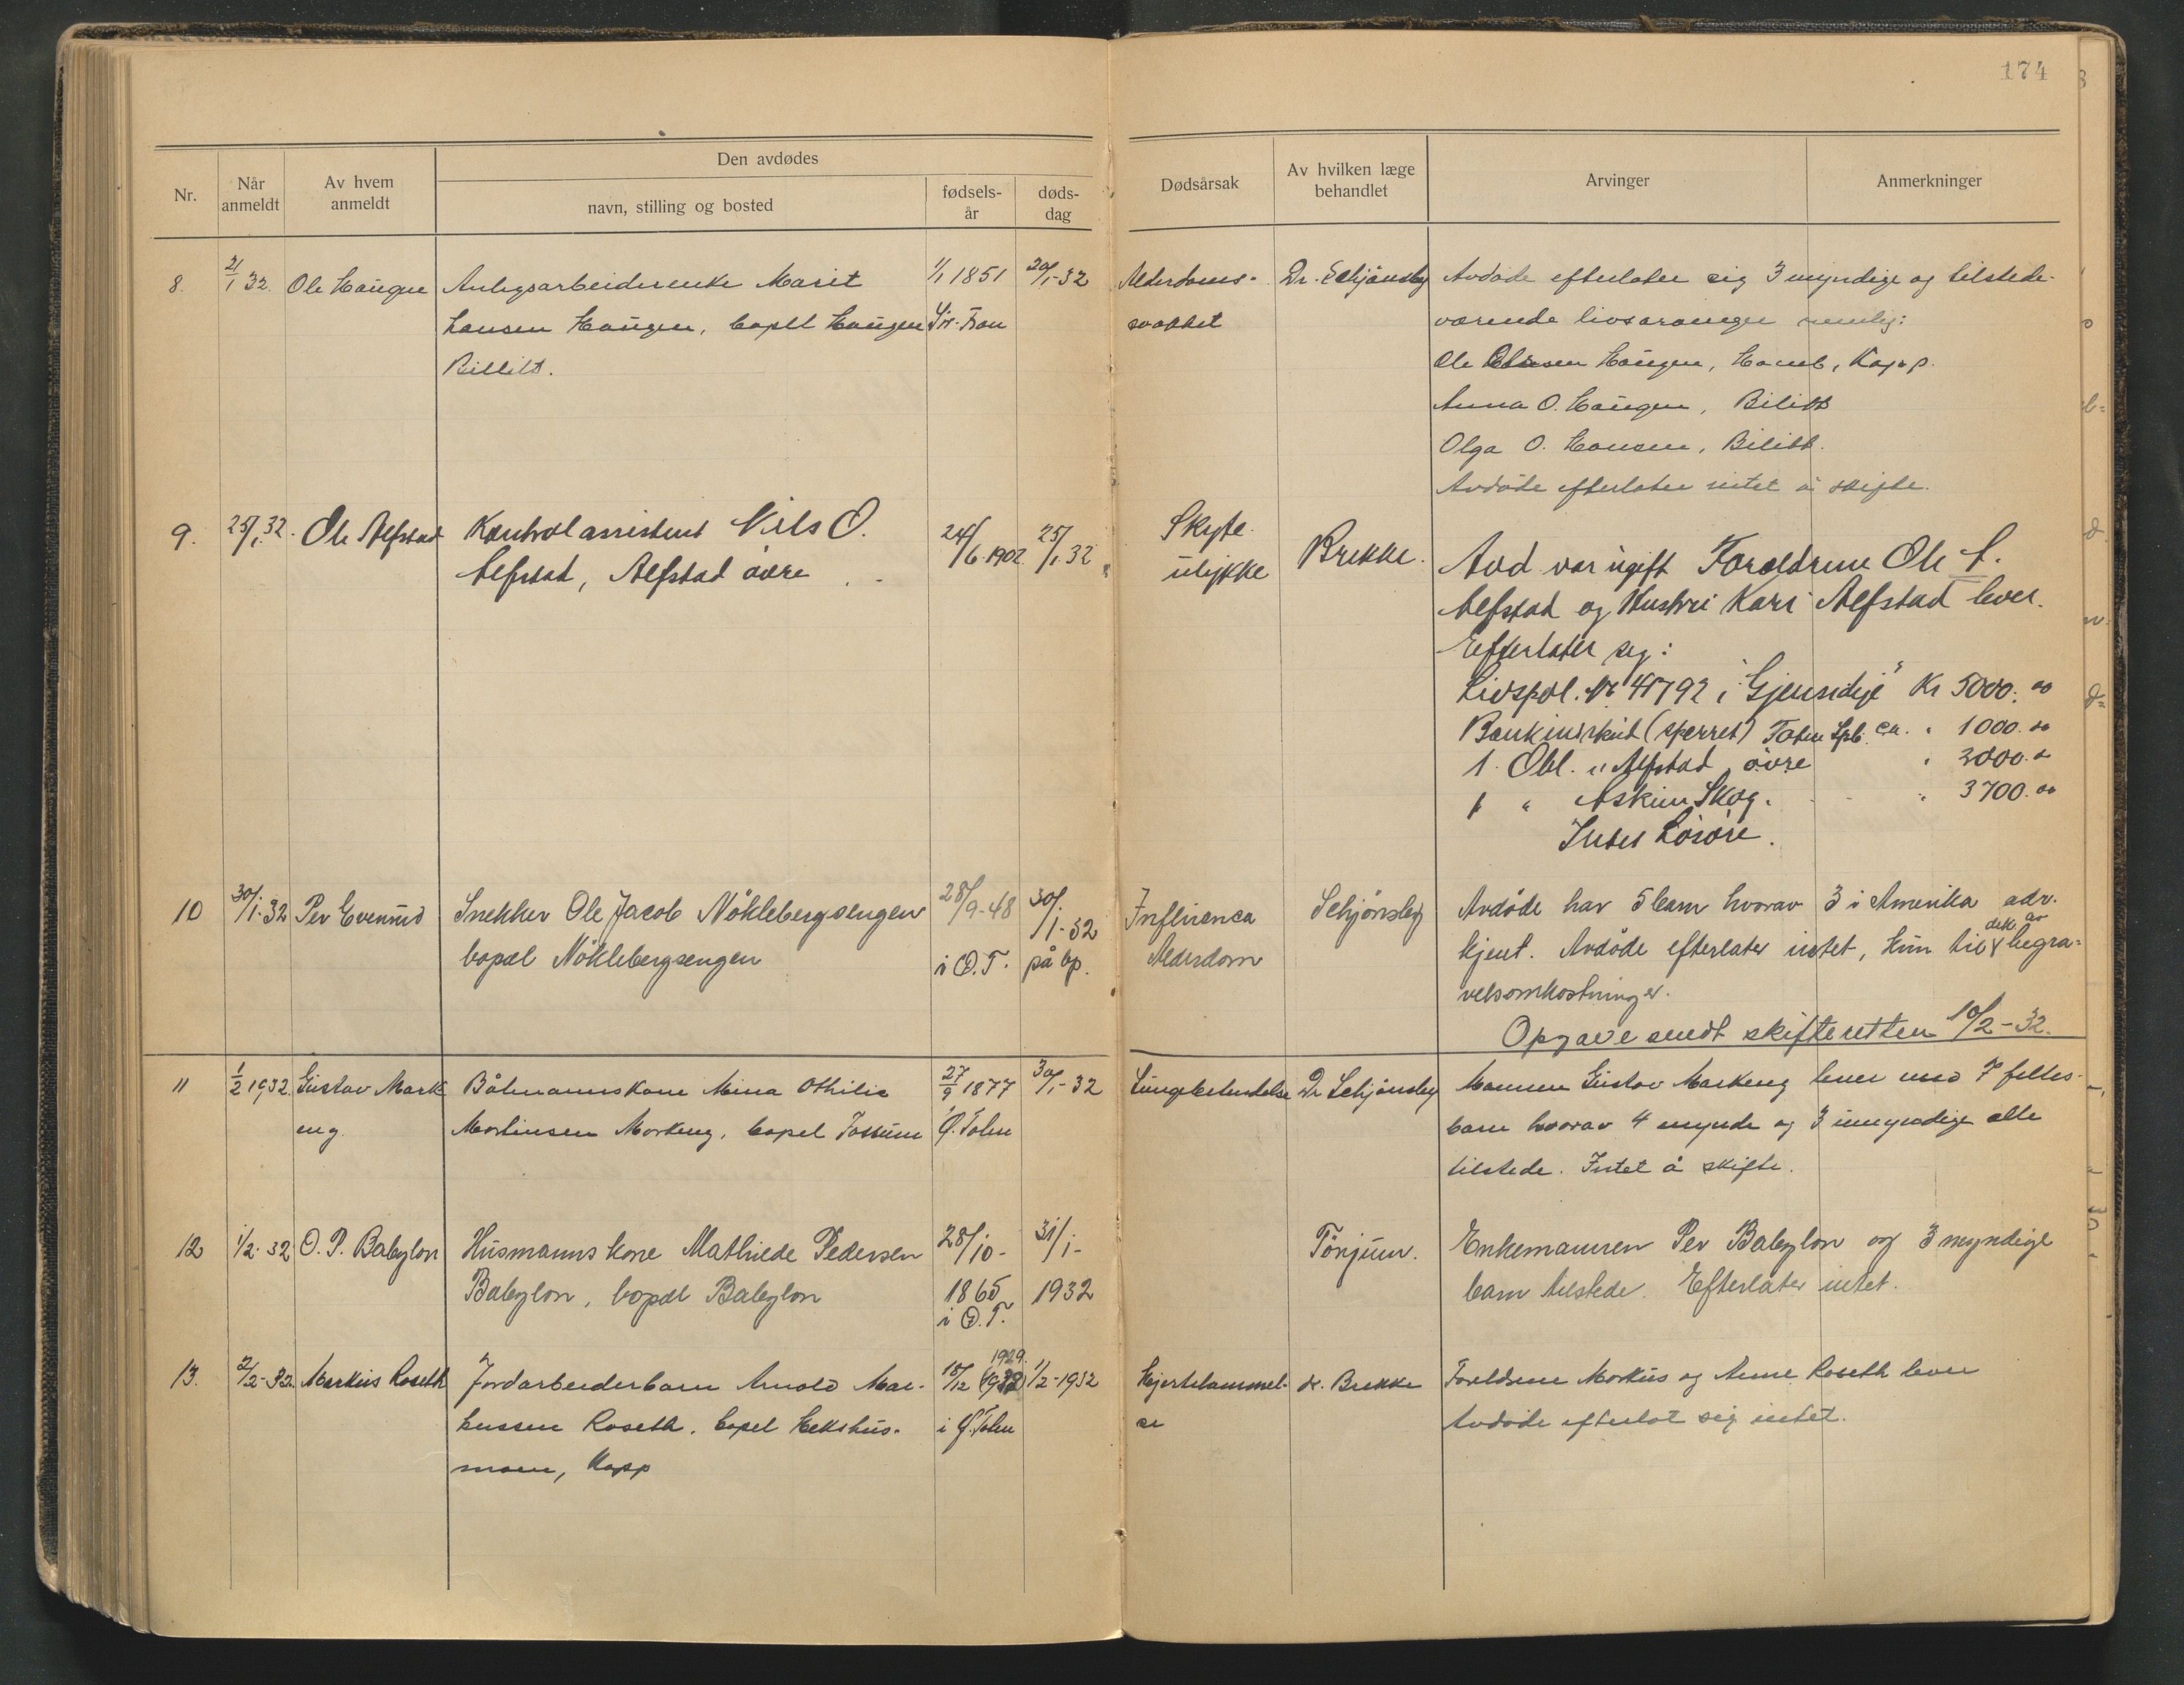 174
Nr.
Når anmeldt
Av hvem anmeldt
Den avdødes
navn, stilling og bosted
fødselsår
dødsdag
Dødsårsak
Av hvilken læge behandlet
Arvinger
Anmerkninger
8. 21/1 32. Ole Haugen Anlegsarbeiderenke Marit 1/1 1851 20/1-32 Alderdoms- Dr. Schjönsby Avdöde efterlater sig 3 myndige og tilstede-
Hansen Haugen, bopel Haugen svakket værende livsarvinger nemlig:
Billilt.
Ole Haugen, Kapp.
Anna O. Haugen, Bilitt
Olga O. Hansen, Bilitt.
Avdöde efterlater intet å skifte.
9. 25/1 32. Ole Alfstad Kontrolassistent Nils O. 24/6 1902 25/1 32 Skyte- Brekke. Avd var ugift Foreldrene Ole
Alfstad, Alfstad övre ulykke Alfstad og Hustru Kari Alfstad lever.
Efterlater seg:
Livspol. Nr 41792 i "Gjensidige" Kr 5000.00
Bankinnskud (sperret) Toten Spb. ca. " 1000.00
1 Obl. i Alfstad övre " 2000.00
1 " Askim Skog. " 3700.00
Intet Lösöre.
10 30/1-32 Per Evenrud Snekker Ole Jacob Nöklebergsengen 28/9-48 30/1-32 Influenca Schjönsby Avdöde har 5 barn hvorav 3 i Amerika adr.
bopæl Nöklebergsengen i Ø.T. på bp. Alderdom kjent. Avdöde efterlater intet, kun til dek. av begra-
velsomkostninger.
Opgave sendt skifteretten 10/2-32.
11 1/2 1932. Gustav Mark Båtmannskone Mina Othilie 27/9 1877 30/1-32 Lungebetendelse Dr Schjönsby Mannen Gustav Markeng lever med 7 felles-
eng. Martinsen Markeng, bopel Fossum Ø. Toten barn hvorav 4 mynde og 3 umyndige alle
tilstede. Intet å skifte.
12 1/2-32 O. P. Babylon Husmannskone Mathilde Pedersen 28/10- 31/1- Tönjum. Enkemannen Per Babylon og 3 myndige
Babylon, bopæl Babylon 1865 1932 barn tilstede. Efterlater intet.
i Ø.T.
13. 2/2-32 Markus Roseth Jordarbeiderbarn Arnold Mar- 18/12 1929. 1/2-1932 Hjertelammel- dr. Brekke Foreldrene Markus og Anne Roseth lever
kussen Roseth. bopel Hekshus- i Ø. Toten se Avdöde efterlot sig intet.
moen, Kapp